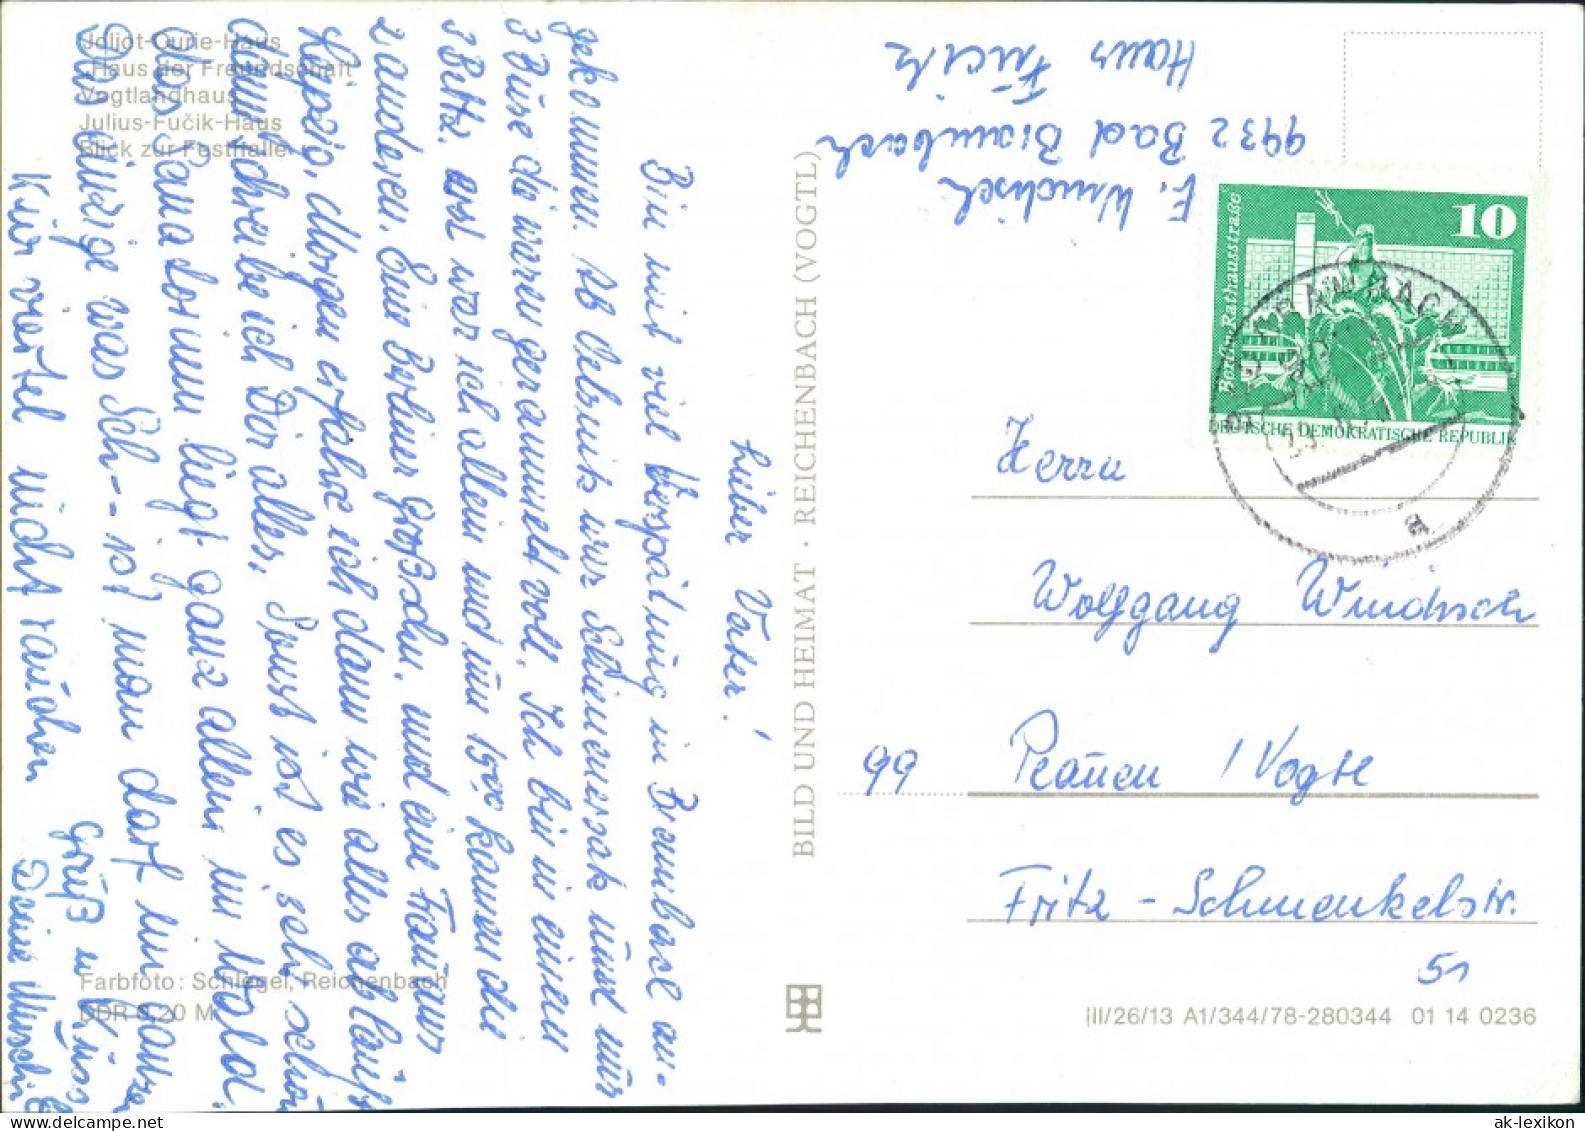 Joliot-Curie-Haus
„Haus der Freundschaft“
Vogtlandhaus
Julius-Fučik-Haus
Blick zur Festhalle
Lieber Vater!
Bin mit viel Verspätung in Brambach an-
gekommen. Ab Oelsnitz war Schienenersatz und nur
3 Busse die waren gerammelt voll. Ich bin in einem
3 Bettz. erst war ich allein und um 15⁰⁰ kamen die
2 anderen. Eine Berliner Großschn. und eine Frau aus
Leipzig, Morgen erfahre ich dann wie alles abläuft
dann schreibe ich Dir alles. Sonst ist es sehr schön
das Sanatorium liegt ganz allein im Wald.
Das einzige was Sch-- ist man darf im ganzen
Kurviertel nicht rauchen.
Gruß u. Kuss
Deine
E. Windisch
9932 Bad Brambach
Haus Fučik
BILD UND HEIMAT · REICHENBACH (VOGTL)
10
Berlin, Rathausstraße
DEUTSCHE DEMOKRATISCHE REPUBLIK
BAD BRAMBACH
Herrn
Wolfgang Windisch
99 Plauen / Vogtl
Fritz-Schmenkelstr.
51
Farbfoto: Schlegel, Reichenbach
DDR 0,20 M
III/26/13 A1/344/78-280344 01 14 0236
ak-lexikon